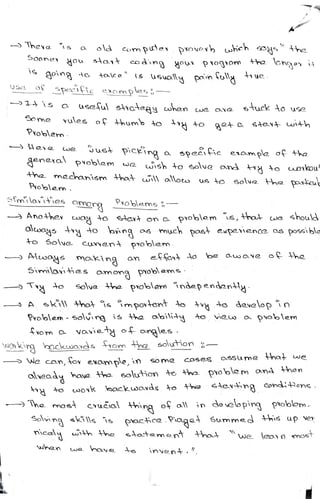 → There is a old computer proverb which says "the
Sooner you start coding your program the longer it
is going to take" is usually painfully true.
Use of specific examples :-
→ It is a useful strategy when we are stuck to use
Some rules of thumb to try to get a start with
Problem.
→ Here we Just picking a specific example of the
general problem we wish to solve and try to workout
the mechanism that will allow us to solve the
Problem.
Similarities among Problems :-
→ Another way to start on a problem is, that we should
always try to bring as much past experience as possible
to Solve current problem
→ Always making an effort to be aware of the
Similarities among problems.
→ Try to solve the problem independently.
→ A skill that is important to try to develop in
Problem-solving is the ability to view a problem
from a variety of angles.
working backwards from the solution :-
→ We can, for example, in some cases assume that we
already have the solution to the problem and then
try to work backwards to the starting conditions.
→ The most crucial thing of all in developing problem.
Solving skills is practice. Piaget Summed this up very
nicely with the statement that "we learn most
when we have to invent.".